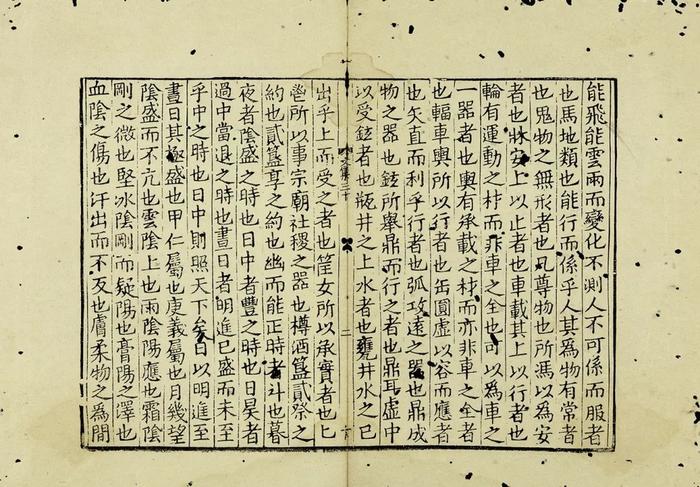 能飛能雲雨而變化不測人不可係而服者
也馬地類也能行而係乎人其為物有常者
也鬼物之無形者也几尊物也所馮以為安
者也牀安上以止者也車載其上以行者也
輪有運動之材而非車之全也可以為車之
一器者也輿有承載之材而亦非車之全者
也輻車輿所以行者也缶圓虛以容而應者
也矢直而利乎行者也弧攻遠之器也鼎成
物之器也鉉所舉鼎而行之者也鼎耳虛中
以受鉉者也瓶井之上水者也甕井水之已
文集三十
二
出乎上而受之者也筐女所以承實者也匕
鬯所以事宗廟社稷之器也樽酒簋貳祭之
約也貳簋享之約也幽而能正時者斗也暮
夜者陰盛之時也日中者豐之時也日昃者
過中當退之時也晝日者明進已盛而未至
乎中之時也日中則照天下矣日以明進至
晝日其極盛也甲仁屬也庚義屬也月幾望
陰盛而不亢也雲陰上也雨陰陽應也霜陰
剛之微也堅冰陰剛而疑陽也膏陽之澤也
血陰之傷也汗出而不反也膚柔物之為間